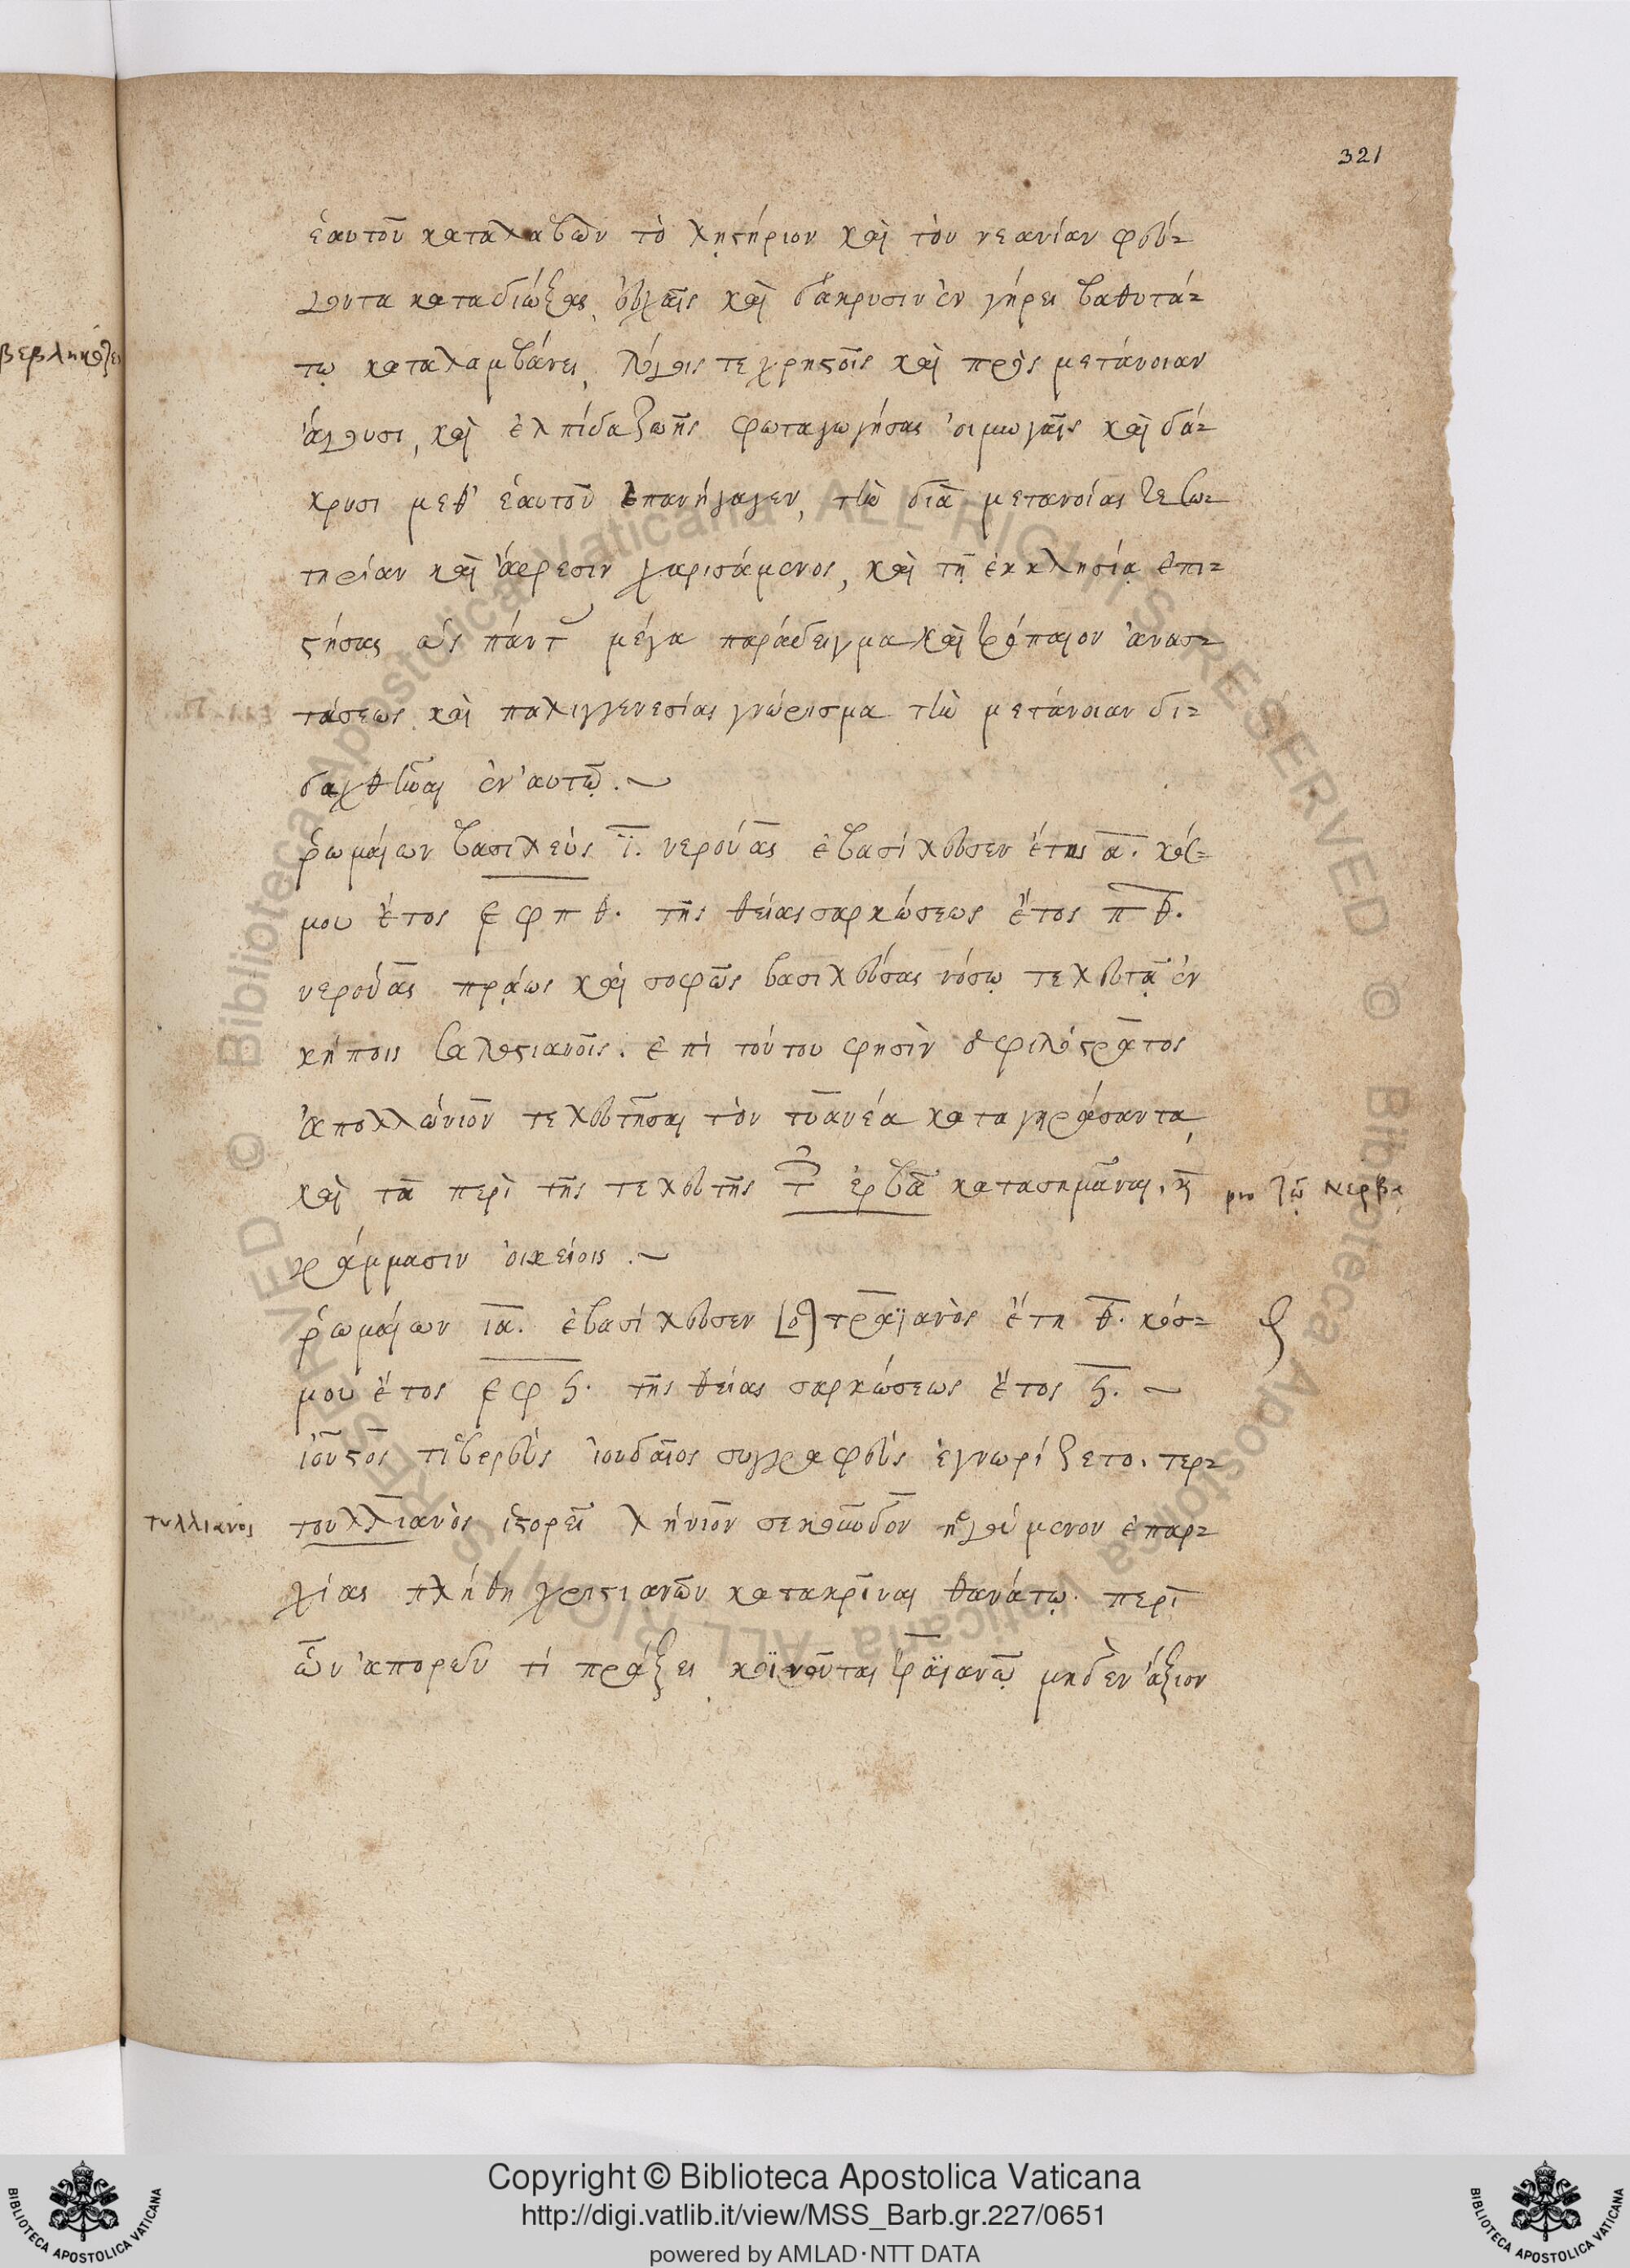 321
ἑαυτοῦ καταλαβὼν τὸ λῃστήριον καὶ τὸν νεανίαν φεύ-
γοντα καταδιώξας, εὐχαῖς καὶ δάκρυσιν ἐν γήρει βαθυτά-
τῳ καταλαμβάνει, λόγοις τε χρηστοῖς καὶ πρὸς μετάνοιαν
ἄγουσι, καὶ ἐλπίδα ζωῆς φωταγωγήσας οἰμωγαῖς καὶ δά-
κρυσι μεθ' ἑαυτοῦ ἐπανήγαγεν, τὴν διὰ μετανοίας σω-
τηρίαν καὶ ἄφεσιν χαρισάμενος, καὶ τῇ ἐκκλησίᾳ ἐπι-
στήσας ὡς πάντ μέγα παράδειγμα καὶ τρόπαιον ἀνασ-
τάσεως καὶ παλιγγενεσίας γνώρισμα τὴν μετάνοιαν δι-
δαχθῆναι ἐν αὐτῷ.
ῥωμαίων βασιλεὺς ϊ. νερούας ἐβασίλευσεν ἔτος α. κόσ-
μου ἔτος ε φ π θ. τῆς θείας σαρκώσεως ἔτος π θ.
νερούας πρᾴως καὶ σοφῶς βασιλεύσας νόσῳ τελευτᾷ ἐν
κήποις σαλουστιανοῖς. ἐπὶ τούτου φησὶν ὁ φιλόστρατος
ἀπολλώνιον τελευτῆσαι τὸν τυανέα καταγηράσαντα,
καὶ τὰ περὶ τῆς τελευτῆς τ ἐρβᾶ κατασημᾶναι. κ
Νερβᾳ
γράμμασιν οἰκείοις.
ῥωμαίων ια. ἐβασίλευσεν [ὁ] τραϊανὸς ἔτη θ. κόσ-
μου ἔτος ε φ ϟ. τῆς θείας σαρκώσεως ἔτος ϟ.
ἰοῦστος τιβερεὺς ἰουδαῖος συγγραφεὺς ἐγνωρίζετο. τερ-
τυλλιανος
τουλλιανὸς ἱστορεῖ λήνιον σεκοῦνδον ἡγούμενον ἐπαρ-
χίας πλήθη χριστιανῶν κατακρῖναι θανάτῳ. περὶ
ὧν ἀπορῶν τί πράξει κοινοῦται τραϊανῷ μηδὲν ἄξιον
Copyright © Biblioteca Apostolica Vaticana
http://digi.vatlib.it/view/MSS_Barb.gr.227/0651
powered by AMLAD·NTT DATA